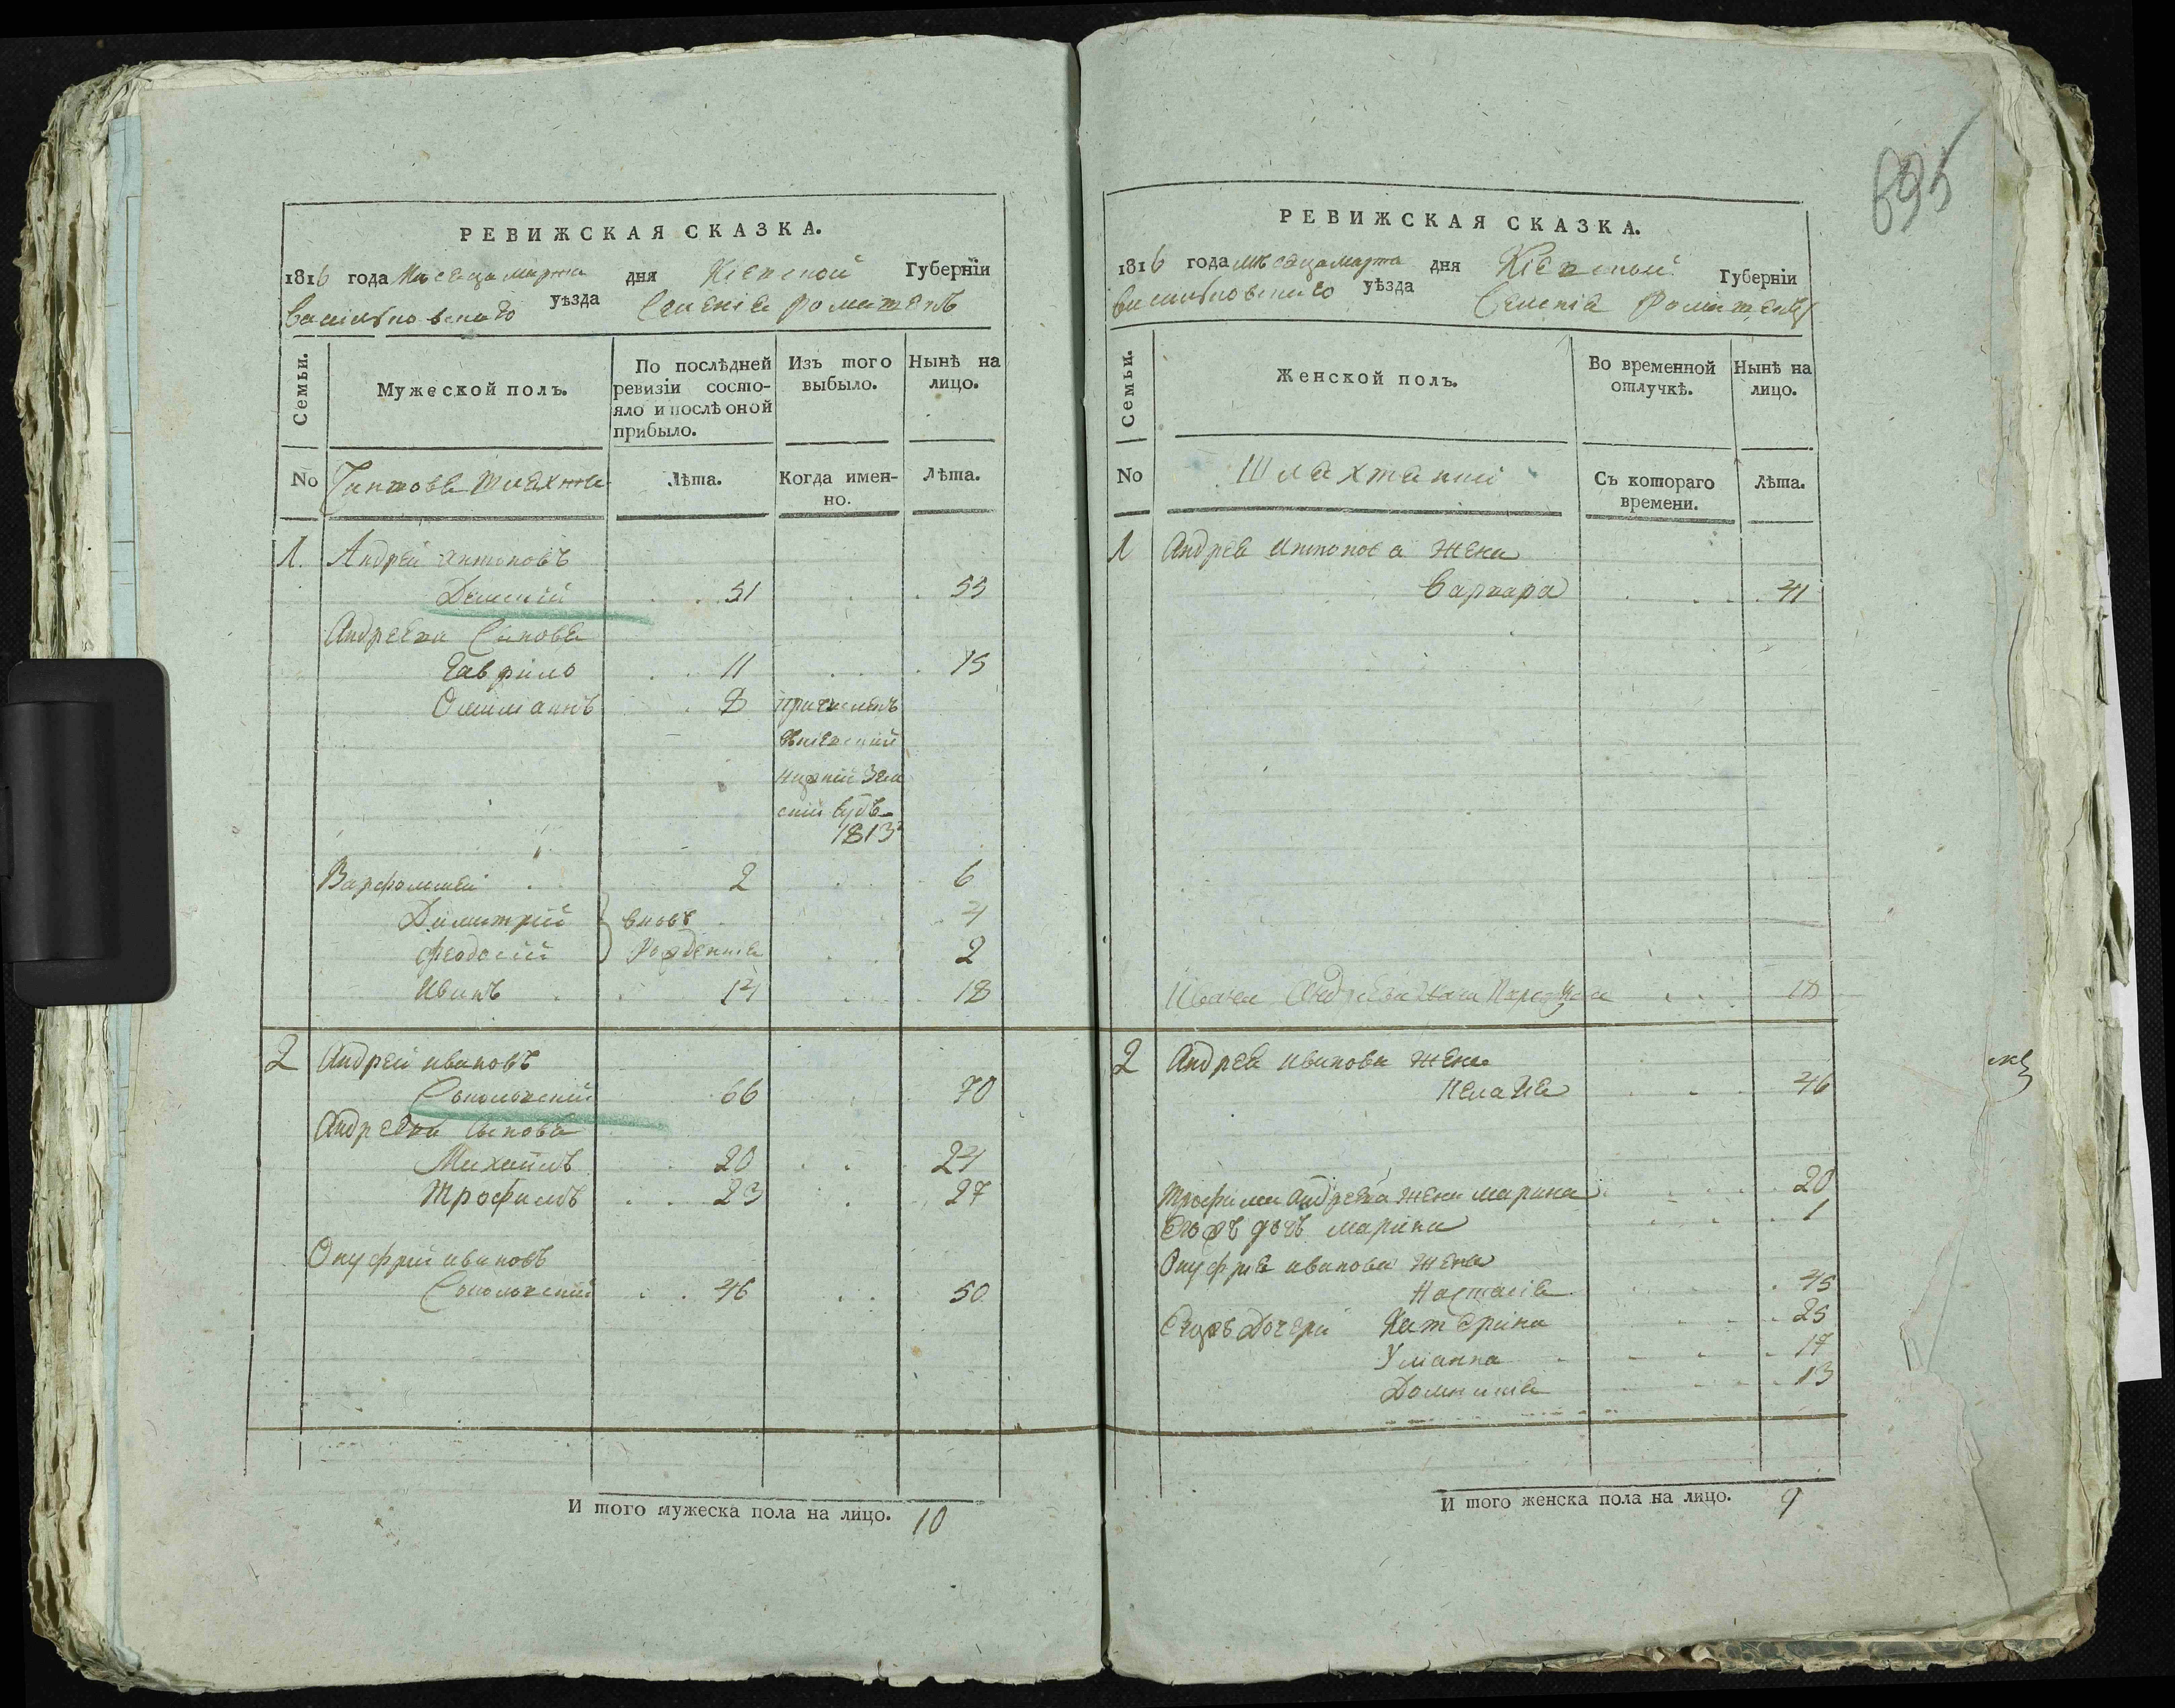 695
РЕВИЖСКАЯ СКАЗКА.
1816 года Мѣсяца марта дня Кіевской Губерніи
Васильковскаго уѣзда Селенія
Семьи.
Мужеской полъ.
По послѣдней ревизіи состо-
яло и послѣ оной
прибыло.
Изъ того
выбыло.
Нынѣ на
лицо.
No
Лѣта.
Когда имен-
но.
Лѣта.
1. Андрей Антоновъ
51 55
Андреевы Сынове
Гаврило 11 15
8
1813
Варфоломей 2 6
Димитрій вновь 4
Феодосій рожденные 2
Иванъ 14 18
2 Андрей Ивановъ
Сокольскій 66 70
Андреева Сынове
Михаилъ 20 24
Трофимъ 23 27
Онуфрій Ивановъ
Сокольскій 46 50
И того мужеска пола на лицо. 10
РЕВИЖСКАЯ СКАЗКА.
1816 года мѣсяца марта дня Кіевской Губерніи
Васильковскаго уѣзда Селенія
Семьи.
Женской полъ.
Во временной
отлучкѣ.
Нынѣ на
лицо.
No
Съ котораго
времени.
Лѣта.
1 Андрея Антонова жена
Варвара 41
Ивана Андреева жена 18
2 Андрея Иванова жена
Пелагея 46
Трофима Андреева жена Марина 20
дочь Марина 1
Онуфрія Иванова жена
Настасія 45
Дочери Катерина 25
Уліанна 17
Домникія 13
И того женска пола на лицо. 9